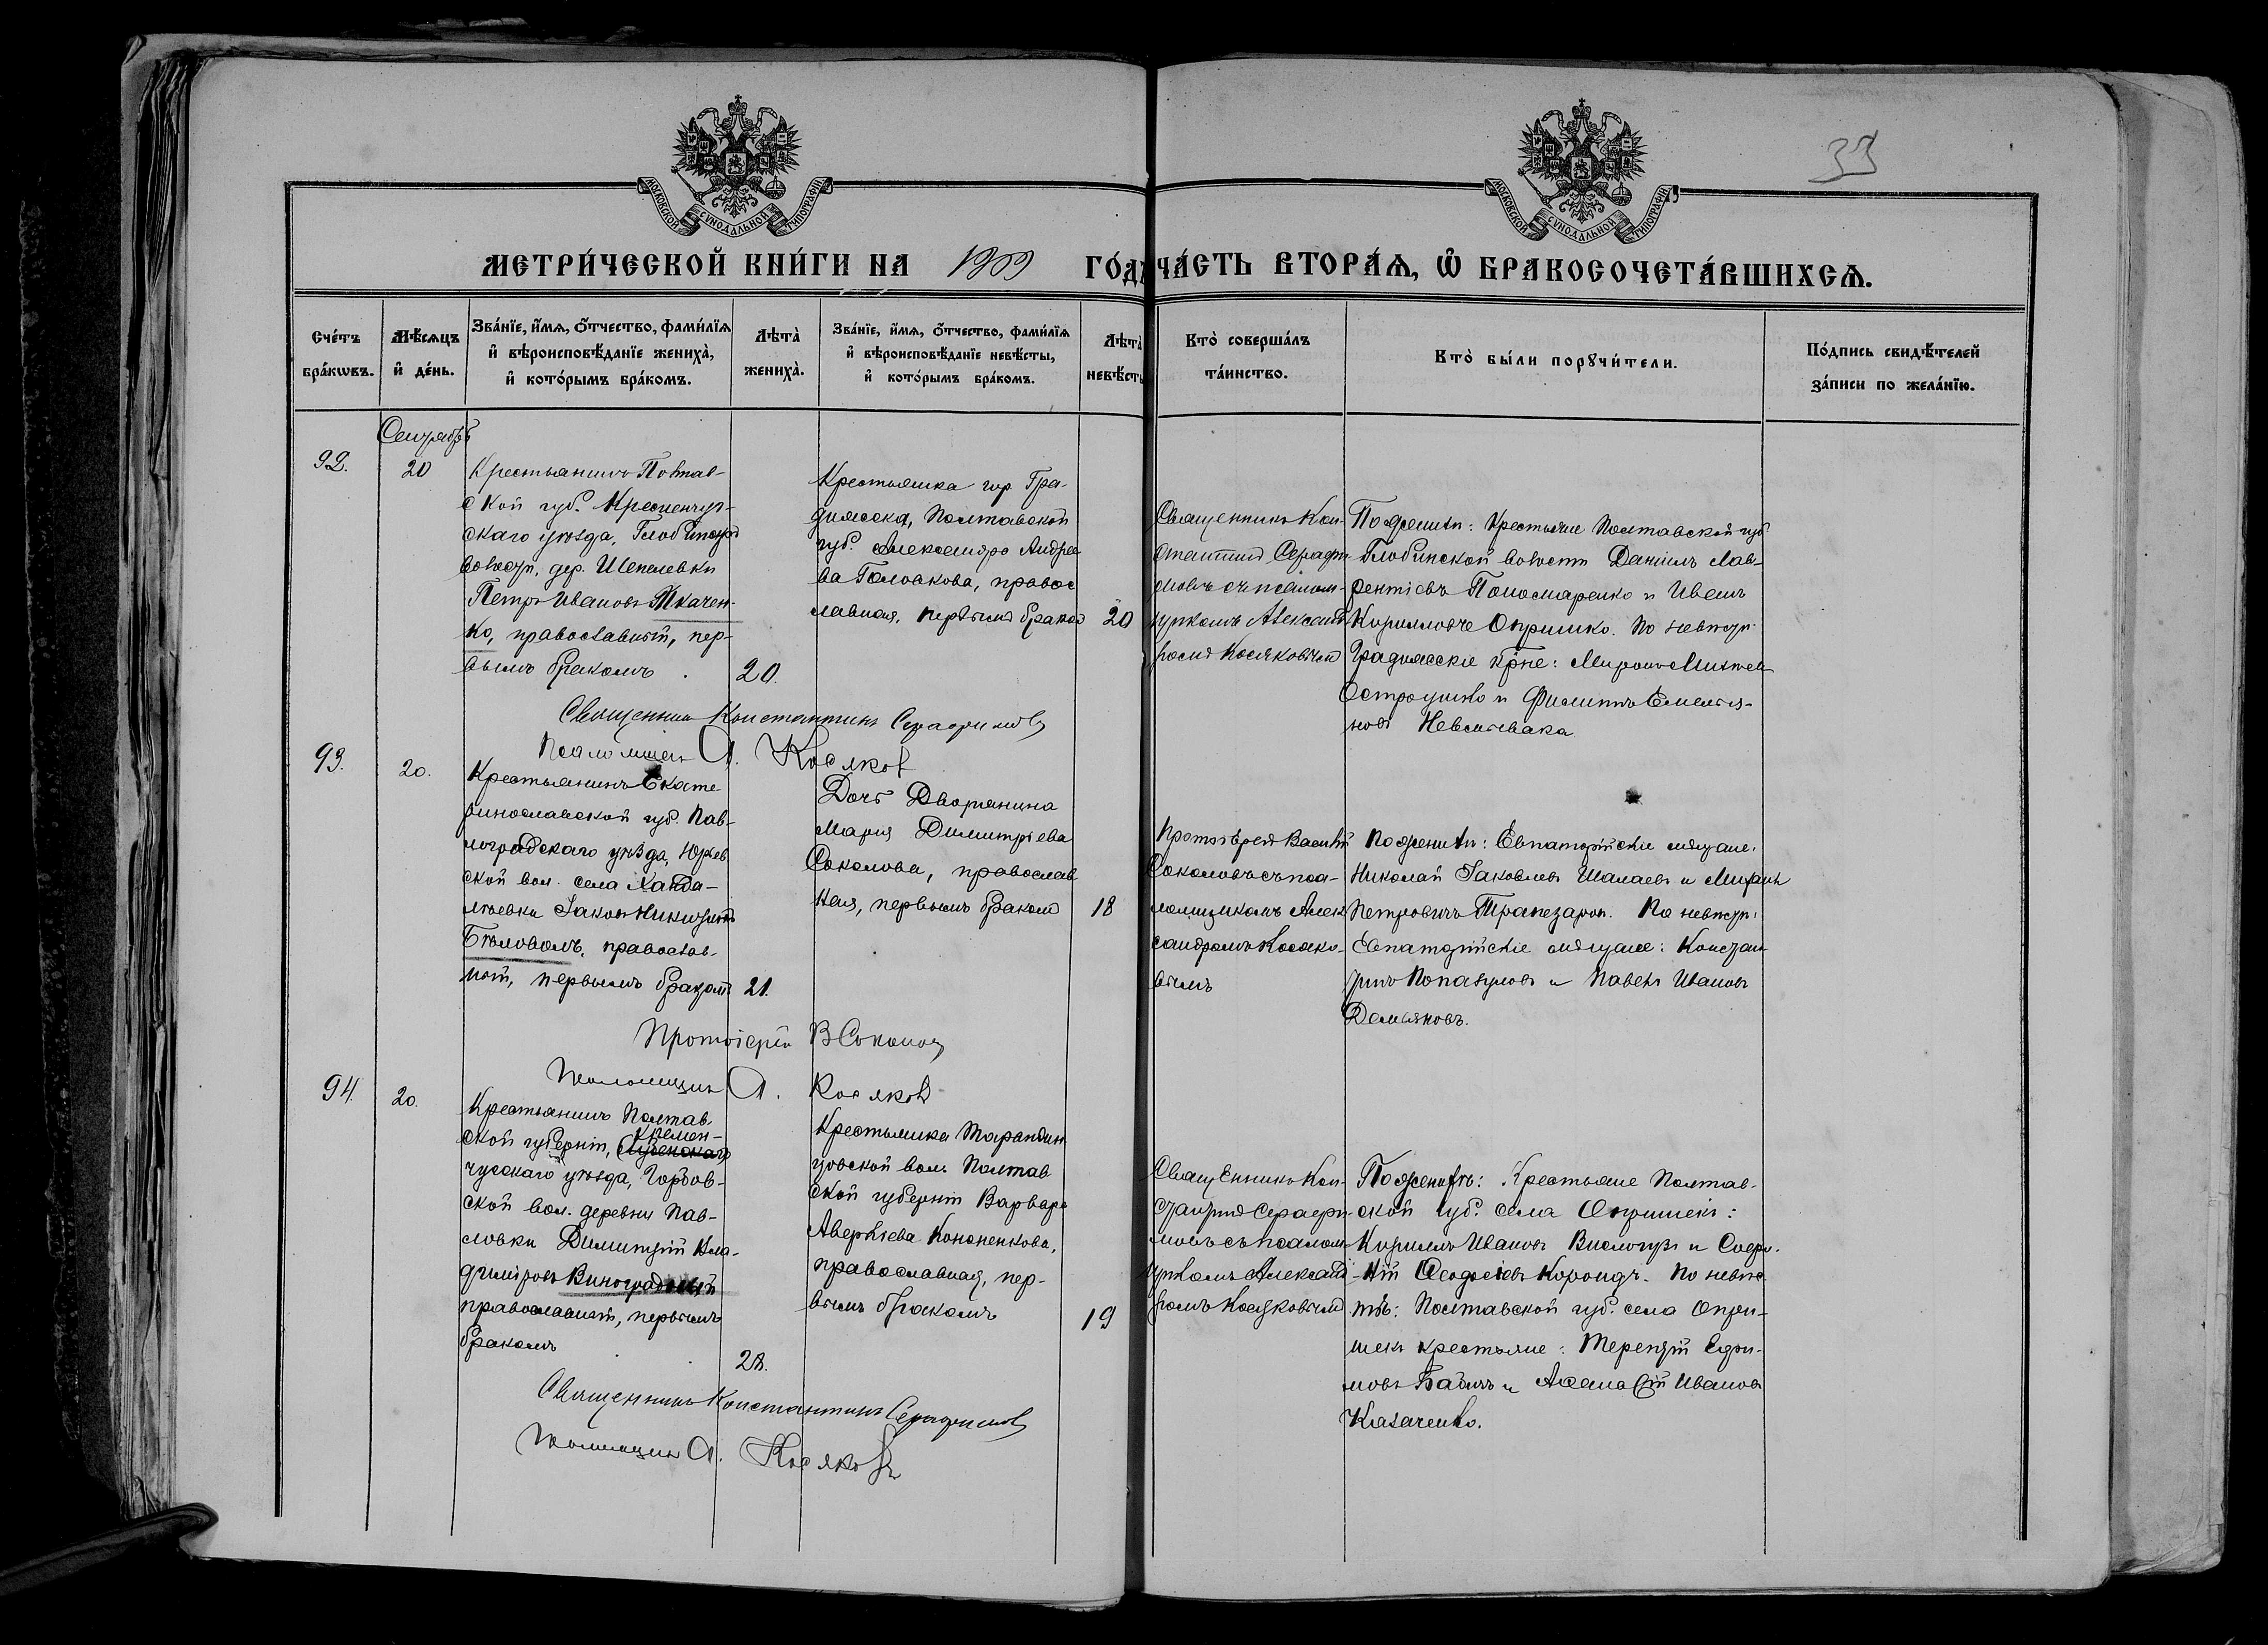 33
МОСКОВСКОЙ СѴНОДАЛЬНОЙ ТИПОГРАФІИ
МОСКОВСКОЙ СѴНОДАЛЬНОЙ ТИПОГРАФІИ
МЕТРИ́ЧЕСКОЙ КНИ́ГИ НА 1909 ГО́ДЪ
ЧА́СТЬ ВТОРА́Ѧ, Ѡ҆ БРАКОСОЧЕТА́ВШИХСѦ.
Сче́тъ
бра́кѡвъ.
Мѣ́сѧцъ
и҆ де́нь.
Зва́нїе, и҆́мѧ, ѻ҆́тчество, фами́лїѧ
и҆ вѣроисповѣ́данїе жениха̀,
и҆ кото́рымъ бра́комъ.
Лѣта̀
жениха̀.
Зва́нїе, и҆́мѧ, ѻ҆́тчество, фами́лїѧ
и҆ вѣроисповѣ́данїе невѣ́сты,
и҆ кото́рымъ бра́комъ.
Лѣта̀
невѣ́сты
Кто̀ соверша́лъ
та́инство.
Кто̀ бы́ли порꙋчи́тели.
По́дпись свидѣ́телей
за́писи по жела́нїю.
Сентябрь
92.
20
Крестьянинъ Полтав-
ской губ. Кременчуг-
скаго уѣзда, Глобинской
волости, дер. Шепелевки
Петръ Ивановъ Ткачен-
ко, православный, пер-
вымъ бракомъ
20.
Крестьянка гор. Гра-
дижска, Полтавской
губ. Александра Андрее
ва Головкова, правос
лавная, первымъ бракомъ
20
Священникъ Кон-
стантинъ Серафи
мовъ съ псалом-
щикомъ Александ
ромъ Косяковымъ
По женихѣ: Крестьяне Полтавской губ
Глобинской волости Даніилъ Лав-
рентіевъ Пономаренко и Иванъ
Кирилловъ Опришко. По невѣстѣ
Градижскіе кр-не: Миронъ Михеев
Остроушко и Филиппъ Емелья-
новъ
Священникъ Константинъ Серафимовъ
Псаломщикъ А. Косяковъ
93.
20.
Крестьянинъ Екате
ринославской губ. Пав-
лоградскаго уѣзда, Юрьев
ской вол. села Ханда-
лѣевки Іаковъ Никитинъ
Бѣловолъ, православ-
ный, первымъ бракомъ
21.
Дочь Дворянина
Марія Димитріева
Соколова, православ
ная, первымъ бракомъ
18
Протоіерей Василій
Соколовъ съ пса-
ломщикомъ Алек
сандромъ Косяко-
вымъ
По женихѣ: Евпаторійскіе мѣщане:
Николай Іаковлевъ Шалаевъ и Михаилъ
Петровичъ Трапезаров. По невѣстѣ:
Евпаторійскіе мѣщане: Констан
тинъ Попандуловъ и Павелъ Ивановъ
Демьяновъ.
Протоіерей В Соколовъ
Псаломщикъ А. Косяковъ
94.
20.
Крестьянинъ Полтав
ской губерніи, Кремен-
чугскаго уѣзда, Горбов-
ской вол. деревни Пав-
ловки Димитрій Вла-
диміровъ Виноградный
православный, первымъ
бракомъ
28.
Крестьянка Марандин
цовской вол. Полтав
ской губерніи Варвара
Аверкіева Кононенкова,
православная, пер-
вымъ бракомъ
19
Священникъ Кон-
стантинъ Серафи-
мовъ съ псалом-
щикомъ Александ
ромъ Косяковымъ
По женихѣ: Крестьяне Полтав-
ской губ. села Опришекъ:
Кириллъ Ивановъ Вислогузъ и Софро-
ній Ѳеодосіевъ Короидъ. По невѣс
тѣ: Полтавской губ. села Опри-
шекъ крестьяне: Терентій Ефи-
мовъ Бабичъ и Аѳанасій Ивановъ
Казаченко.
Священникъ Константинъ Серафимовъ
Псаломщикъ А. Косяковъ